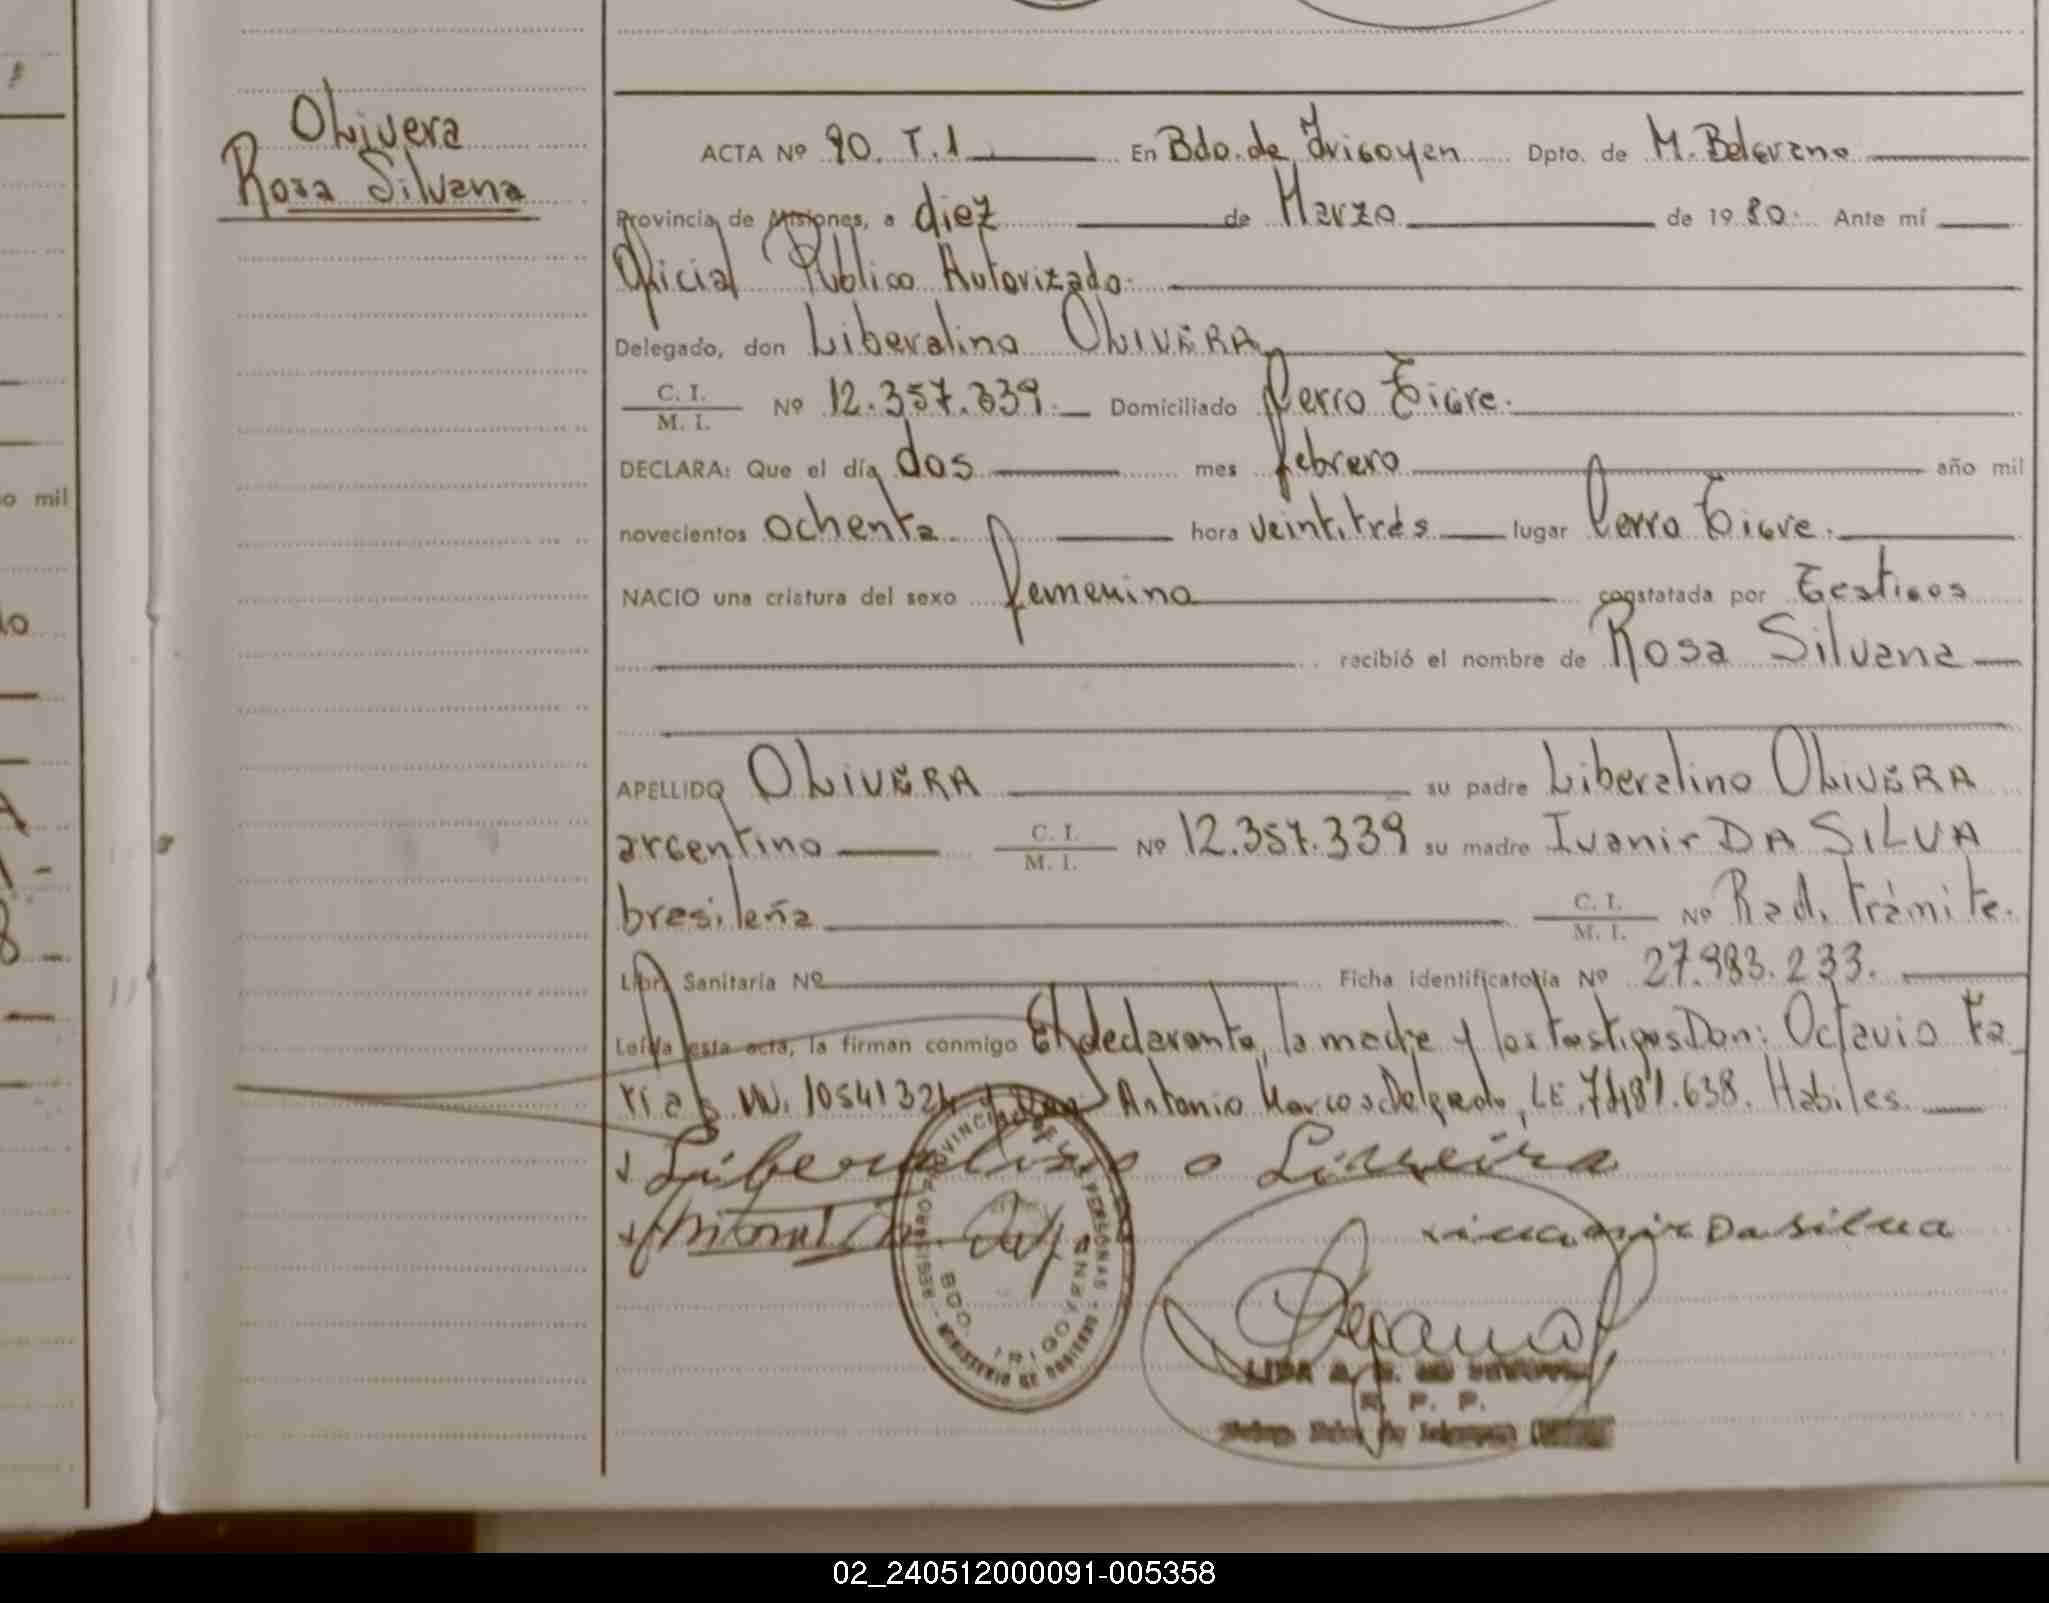 Olivera
Rosa Silvana
ACTA Nº 90. T. 1 En Bdo. de Irigoyen Dpto. de M. Belgrano
Provincia de Misiones, a diez de Marzo de 1980. Ante mí
Oficial Público Autorizado.
Delegado, don Liberalino OLIVERA
C. I.
M. I. Nº 12.357.339. Domiciliado Cerro Tigre.
DECLARA: Que el día dos mes febrero año mil
novecientos ochenta. hora veintitrés lugar Cerro Tigre.
NACIO una criatura del sexo femenino constatada por Testigos
recibió el nombre de Rosa Silvana
APELLIDO OLIVERA su padre Liberalino OLIVERA
argentino C. I. M. I. Nº 12.357.339 su madre Ivanir DA SILVA
brasileña C. I. M. I. Nº Rad. trámite.
Libr. Sanitaria Nº Ficha identificatoria Nº 27.983.233.
Leída esta acta, la firman conmigo El declarante, la madre y los testigos Don: Octavio Fa
rías 10541324 y Don Antonio Marcos Delgado, LE. 7.481.638. Habiles.
Liberalino o Liveira
Da Silva
REGISTRO PROVINCIAL DE LAS PERSONAS
MINISTERIO DE GOBIERNO
BDO. IRIGOYEN
LIDIA
R. P. P.
o mil
lo
02_240512000091-005358